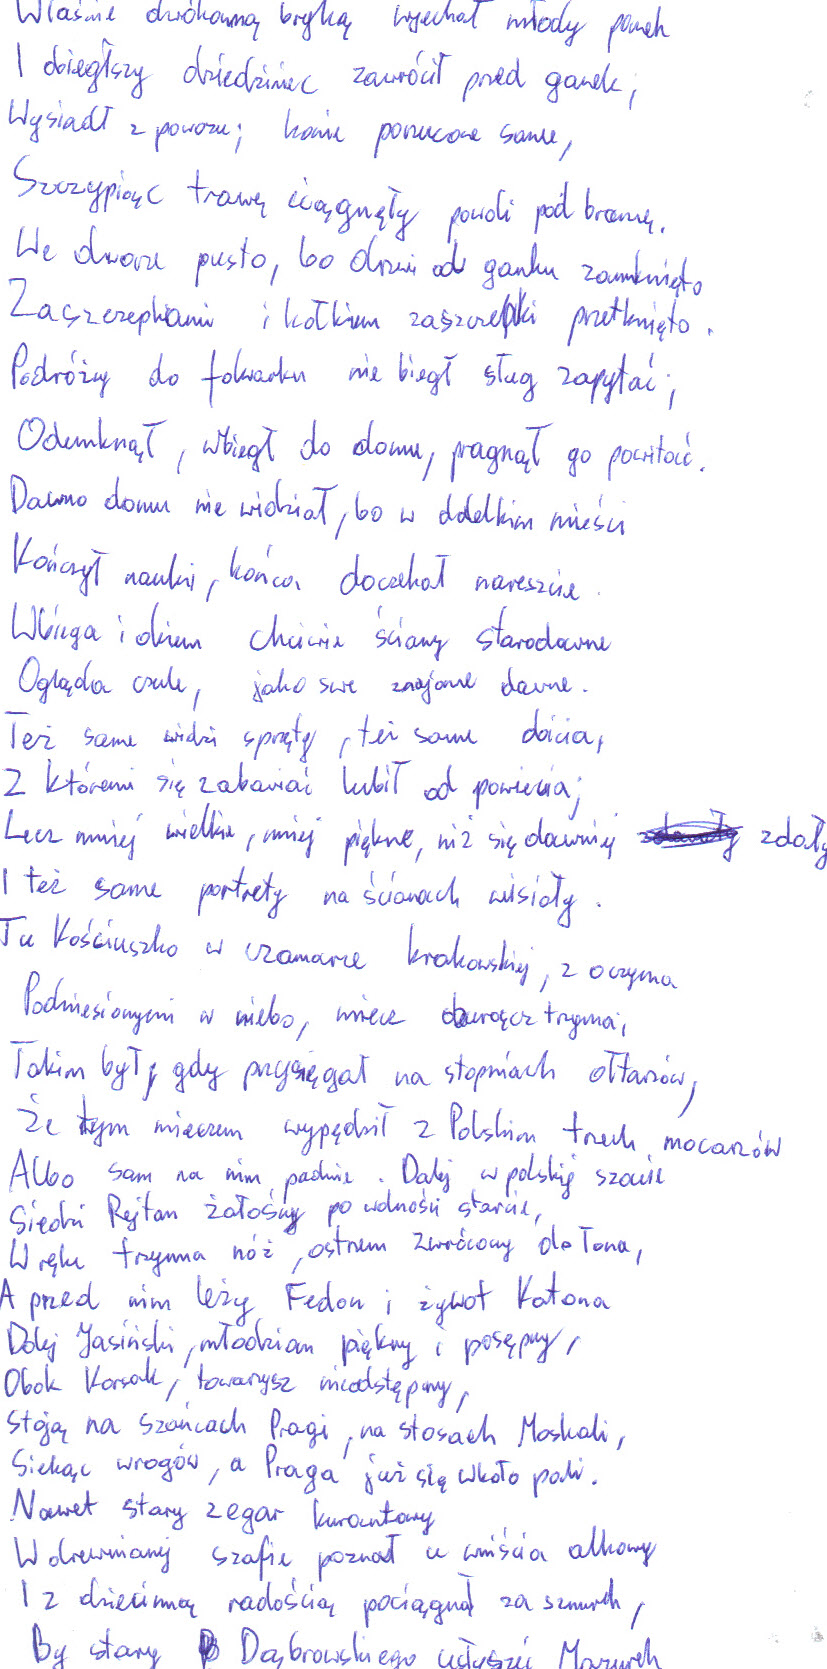 Właśnie dwókonną bryką wjechał młody panek
I obiegłszy dziedziniec zawrócił przed ganek;
Wysiadł z powozu; konie porzucone same,
Szczypiąc trawę ciągnęły powoli pod bramę.
We dworze pusto, bo drzwi od ganku zamknięto
Zaszczepkami i kołkiem zaszczepki przetknięto.
Podróżny do folwarku nie biegł sług zapytać;
Odemknął, wbiegł do domu, pragnął go powitać.
Dawno domu nie widział, bo w dalekim mieści
Kończył nauki, końca doczekał nareszcie.
Wbiega i okiem chciwie ściany starodawne
Ogląda czule, jako swe znajome dawne.
Też same widzi sprzęty, też same obicia,
Z któremi się zabawiać lubił od powicia;
Lecz mniej wielkie, mniej piękne, niż się dawniej zdały
I też same portrety na ścianach wisiały.
Tu Kościuszko w czamarce krakowskiej, z oczyma
Podniesionymi w niebo, miecz oburącz trzyma;
Takim był, gdy przysięgał na stopniach ołtarzów,
Że tym mieczem wypędził z Polskim trzech mocarzów
Albo sam na nim padnie. Dalej w polskiej szacie
Siedzi Rejtan żałośny po wolności stracie,
W ręku trzymna nóż, ostrzem zwrócony do łona,
A przed nim leży Fedon i żywot Katona
Dalej Jasiński, młodzian piękny i posępny,
Obok Korsak, towarzysz nieodstępny,
Stoją na szańcach Pragi, na stosach Moskali,
Siekąc wrogów, a Praga już się wkoło pali.
Nawet stary zegar kurantowy
W drewnianej szafie poznał u wniścia alkowy
I z dziecinną radością pociągnął za sznurek,
By stary Dąbrowskiego usłyszeć Mazurek